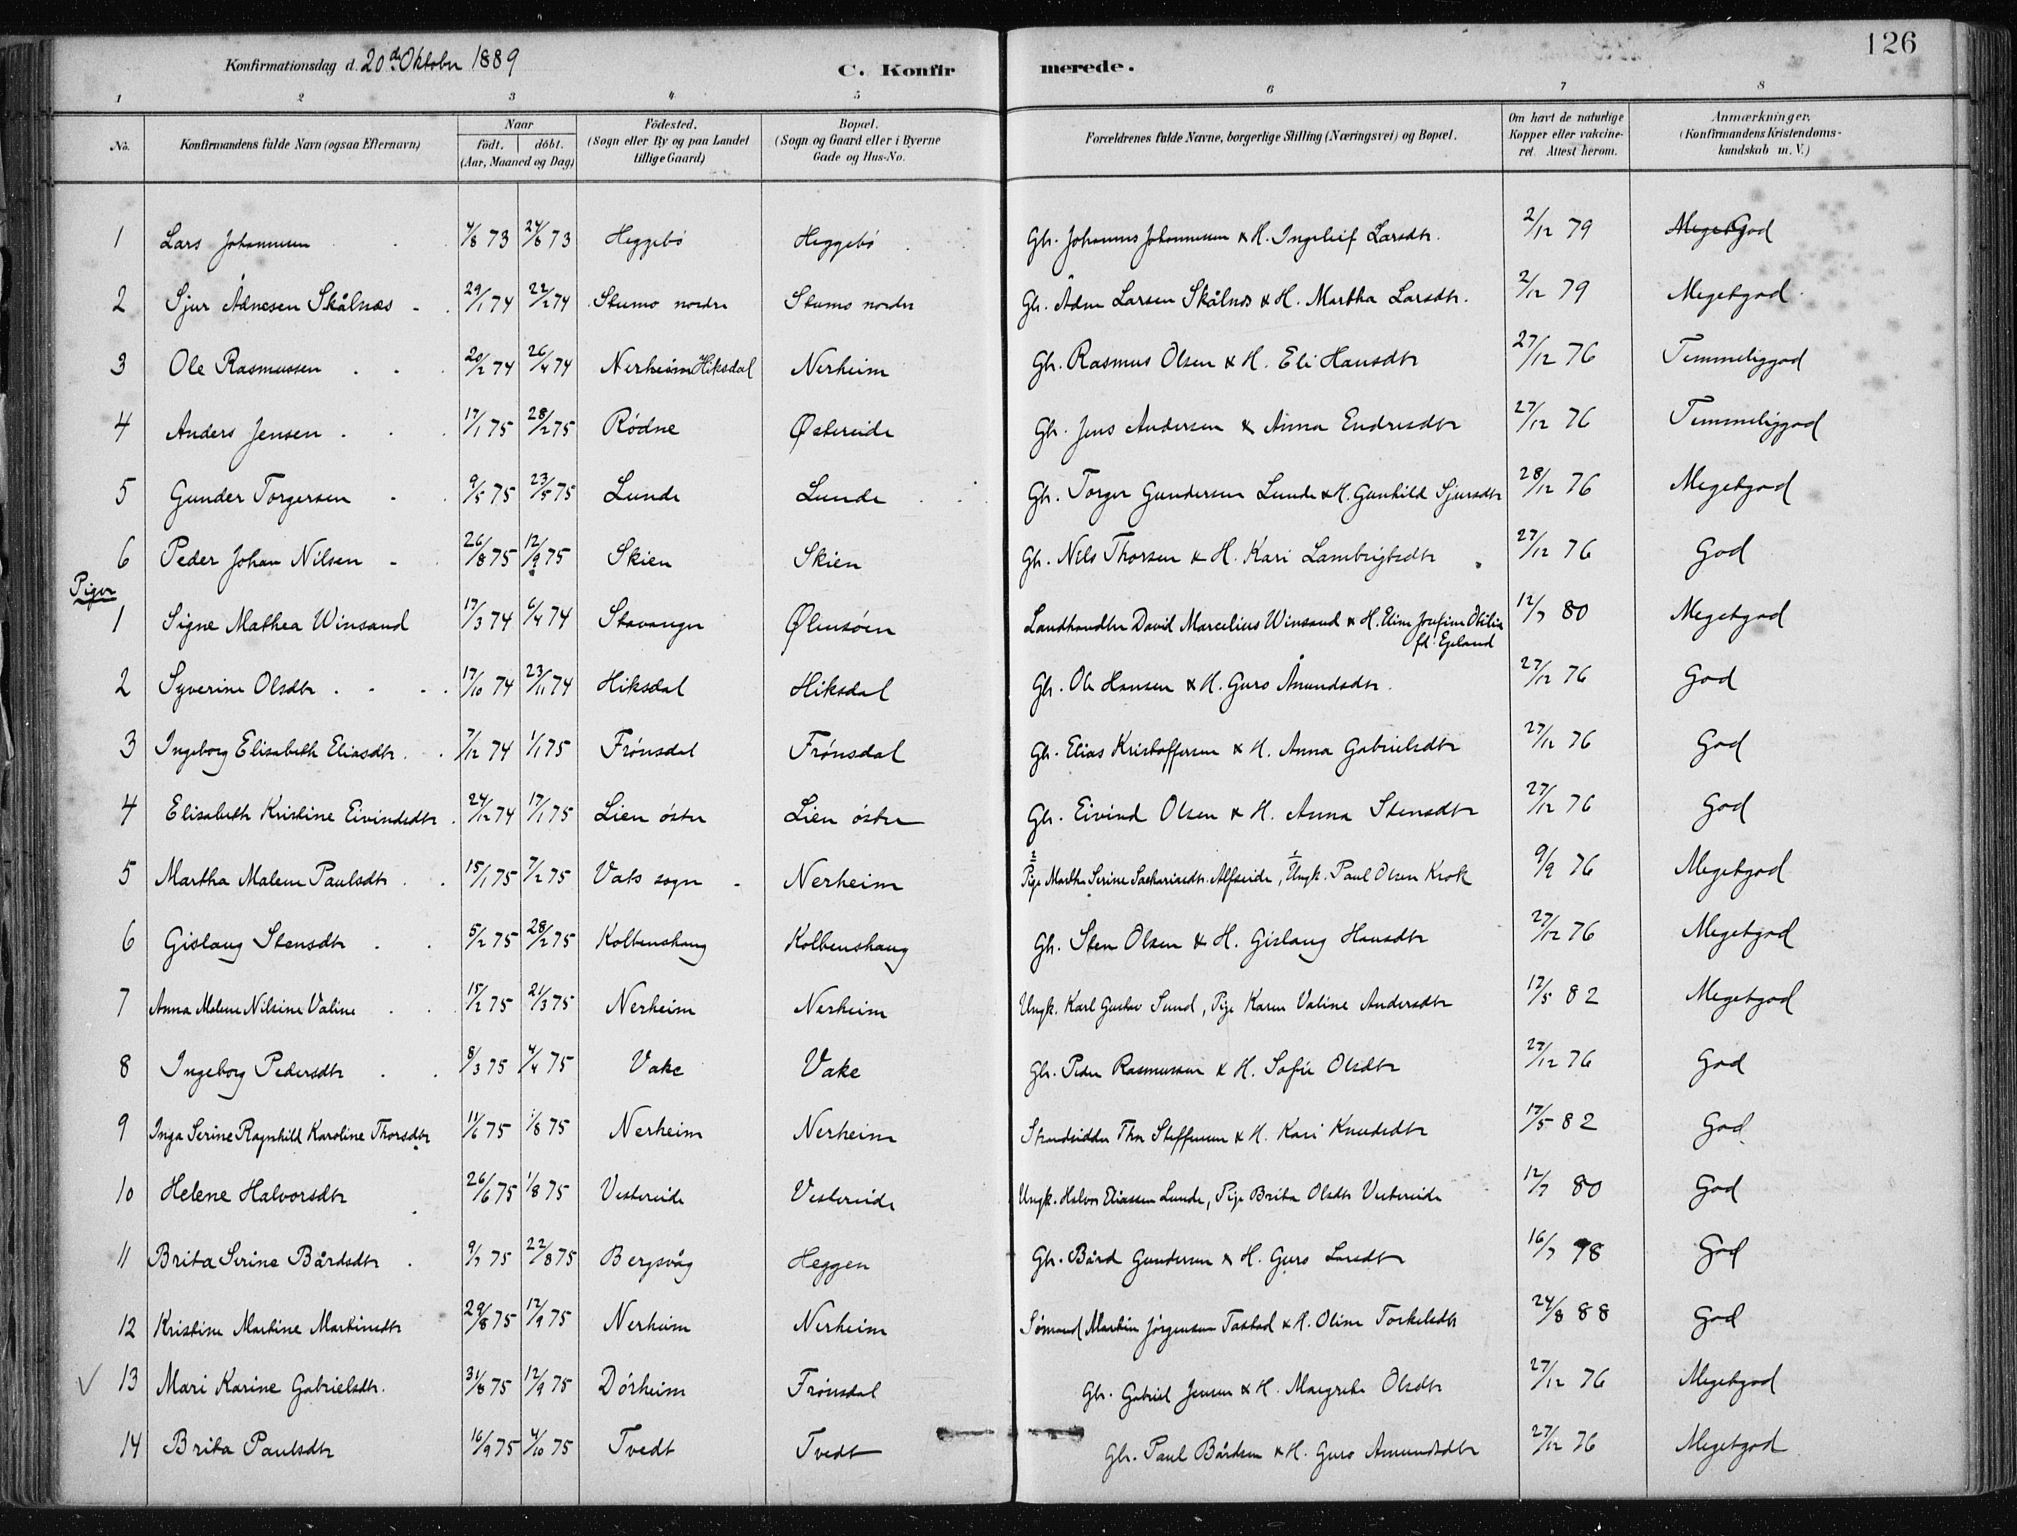 126
Konfirmationsdag d. 20de Oktober 1889 C. Konfirmerede.
1 2 3 4 5 6 7 8
No. Konfirmandens fulde Navn (ogsaa Efternavn) Naar födt. döbt. (Aar, Maaned og Dag) Födested. (Sogn eller By og paa Landet tillige Gaard) Bopæl. (Sogn og Gaard eller i Byerne Gade og Hus-No. Forældrenes fulde Navne, borgerlige Stilling (Næringsvei) og Bopæl. Om havt de naturlige Kopper eller vakcineret. Attest herom. Anmærkninger. (Konfirmandens Kristendomskundskab m. V.)
1 Lars Johannesen 4/8 73 24/8 73 Heggebö Heggebö Gbr. Johannes Johannesen & H. Ingeleif Larsdtr. 2/12 79 Meget God
2 Sjur Ådnesen Skålnæs 29/1 74 22/2 74 Skumo nordre Skumo nordre Gbr. Ådne Larsen Skålnæs & H. Martha Larsdtr. 2/12 79 Megetgod
3 Ole Rasmussen 20/2 74 26/4 74 Nerheim Hiksdal Nerheim Gbr. Rasmus Olsen & H. Eli Hansdtr 27/12 76 Temmeliggod
4 Anders Jensen 17/1 75 28/2 75 Rødne Østereide Gbr. Jens Andersen & Anna Endresdtr 27/12 76 Temmeliggod
5 Gunder Torgersen 9/5 75 23/5 75 Lunde Lunde Gbr. Torger Gundersen Lunde & H. Gunhild Sjursdtr 28/12 76 Megetgod
6 Peder Johan Nilsen 26/8 75 12/9 75 Skien Skien Gbr. Nels Thorsen & H. Kari Lambrigtsdtr 27/12 76 God
Piger
1 Signe Mathea Winsand 17/3 74 6/4 74 Stavanger Ølensöen Landhandler David Marcelius Winsand & H. Eline Josefine Otilie fd. Egeland 12/7 80 Megetgod
2 Syverine Olsdtr 17/10 74 23/11 74 Hiksdal Hiksdal Gbr. Ole Hansen & H. Guro Åmundsdtr. 27/12 76 God
3 Ingeborg Elisabeth Eliasdtr 7/12 74 1/1 75 Frönsdal Frönsdal Gbr. Elias Kristoffersen & H. Anna Gabrielsdtr 27/12 76 God
4 Elisabeth Kristine Eivindsdtr 24/12 74 17/1 75 Lien östre Lien östre Gbr. Eivind Olsen & H. Anna Stensdtr 27/12 76 God
5 Martha Malene Paulsdtr 15/1 75 7/2 75 Vats sogn Nerheim 2 Pige Martha Serine Sachariasdtr. Alfseide, 1 Ungk. Paul Olsen Krok 9/9 76 Megetgod
6 Gislaug Stensdtr 5/2 75 28/2 75 Kolbenshaug Kolbenshaug Gbr. Sten Olsen & H. Gislaug Hansdtr 27/12 76 Megetgod
7 Anna Malene Nilsine Valine 15/2 75 21/3 75 Nerheim Nerheim Ungk. Karl Gustav Sund, Pige Karen Valine Andersdtr 12/5 82 Megetgod
8 Ingeborg Pedersdtr 8/3 75 4/4 75 Vake Vake Gbr. Peder Rasmussen & H. Sofie Olsdtr 27/12 76 God
9 Inga Serine Ragnhild Karoline Thorsdtr 11/6 75 1/8 75 Nerheim Nerheim Strandsidder Thor Steffensen & H. Kari Knudsdtr 17/5 82 God
10 Helene Halvorsdtr 26/6 75 1/8 75 Vestereide Vestereide Ungk. Halvor Eliassen Lunde, Pige Brita Olsdtr Vestereide 12/7 80 God
11 Brita Serine Bårdsdtr 9/7 75 22/8 75 Bergsvåg Heggen Gbr. Bård Gundersen & H. Guro Larsdtr 16/7 78 God
12 Kristine Martine Martinsdtr 29/8 75 12/9 75 Nerheim Nerheim Sömand Martin Jörgensen Tastad & H. Oline Torkelsdtr 24/8 88 God
13 Mari Karine Gabrielsdtr. 31/8 75 12/9 75 Dörheim Frönsdal Gbr. Gabriel Jensen & H. Margrete Olsdtr 27/12 76 Megetgod
14 Brita Paulsdtr 16/9 75 4/10 75 Tvedt Tvedt Gbr. Paul Bårdsen & H. Guro Amundsdtr 27/12 76 Megetgod